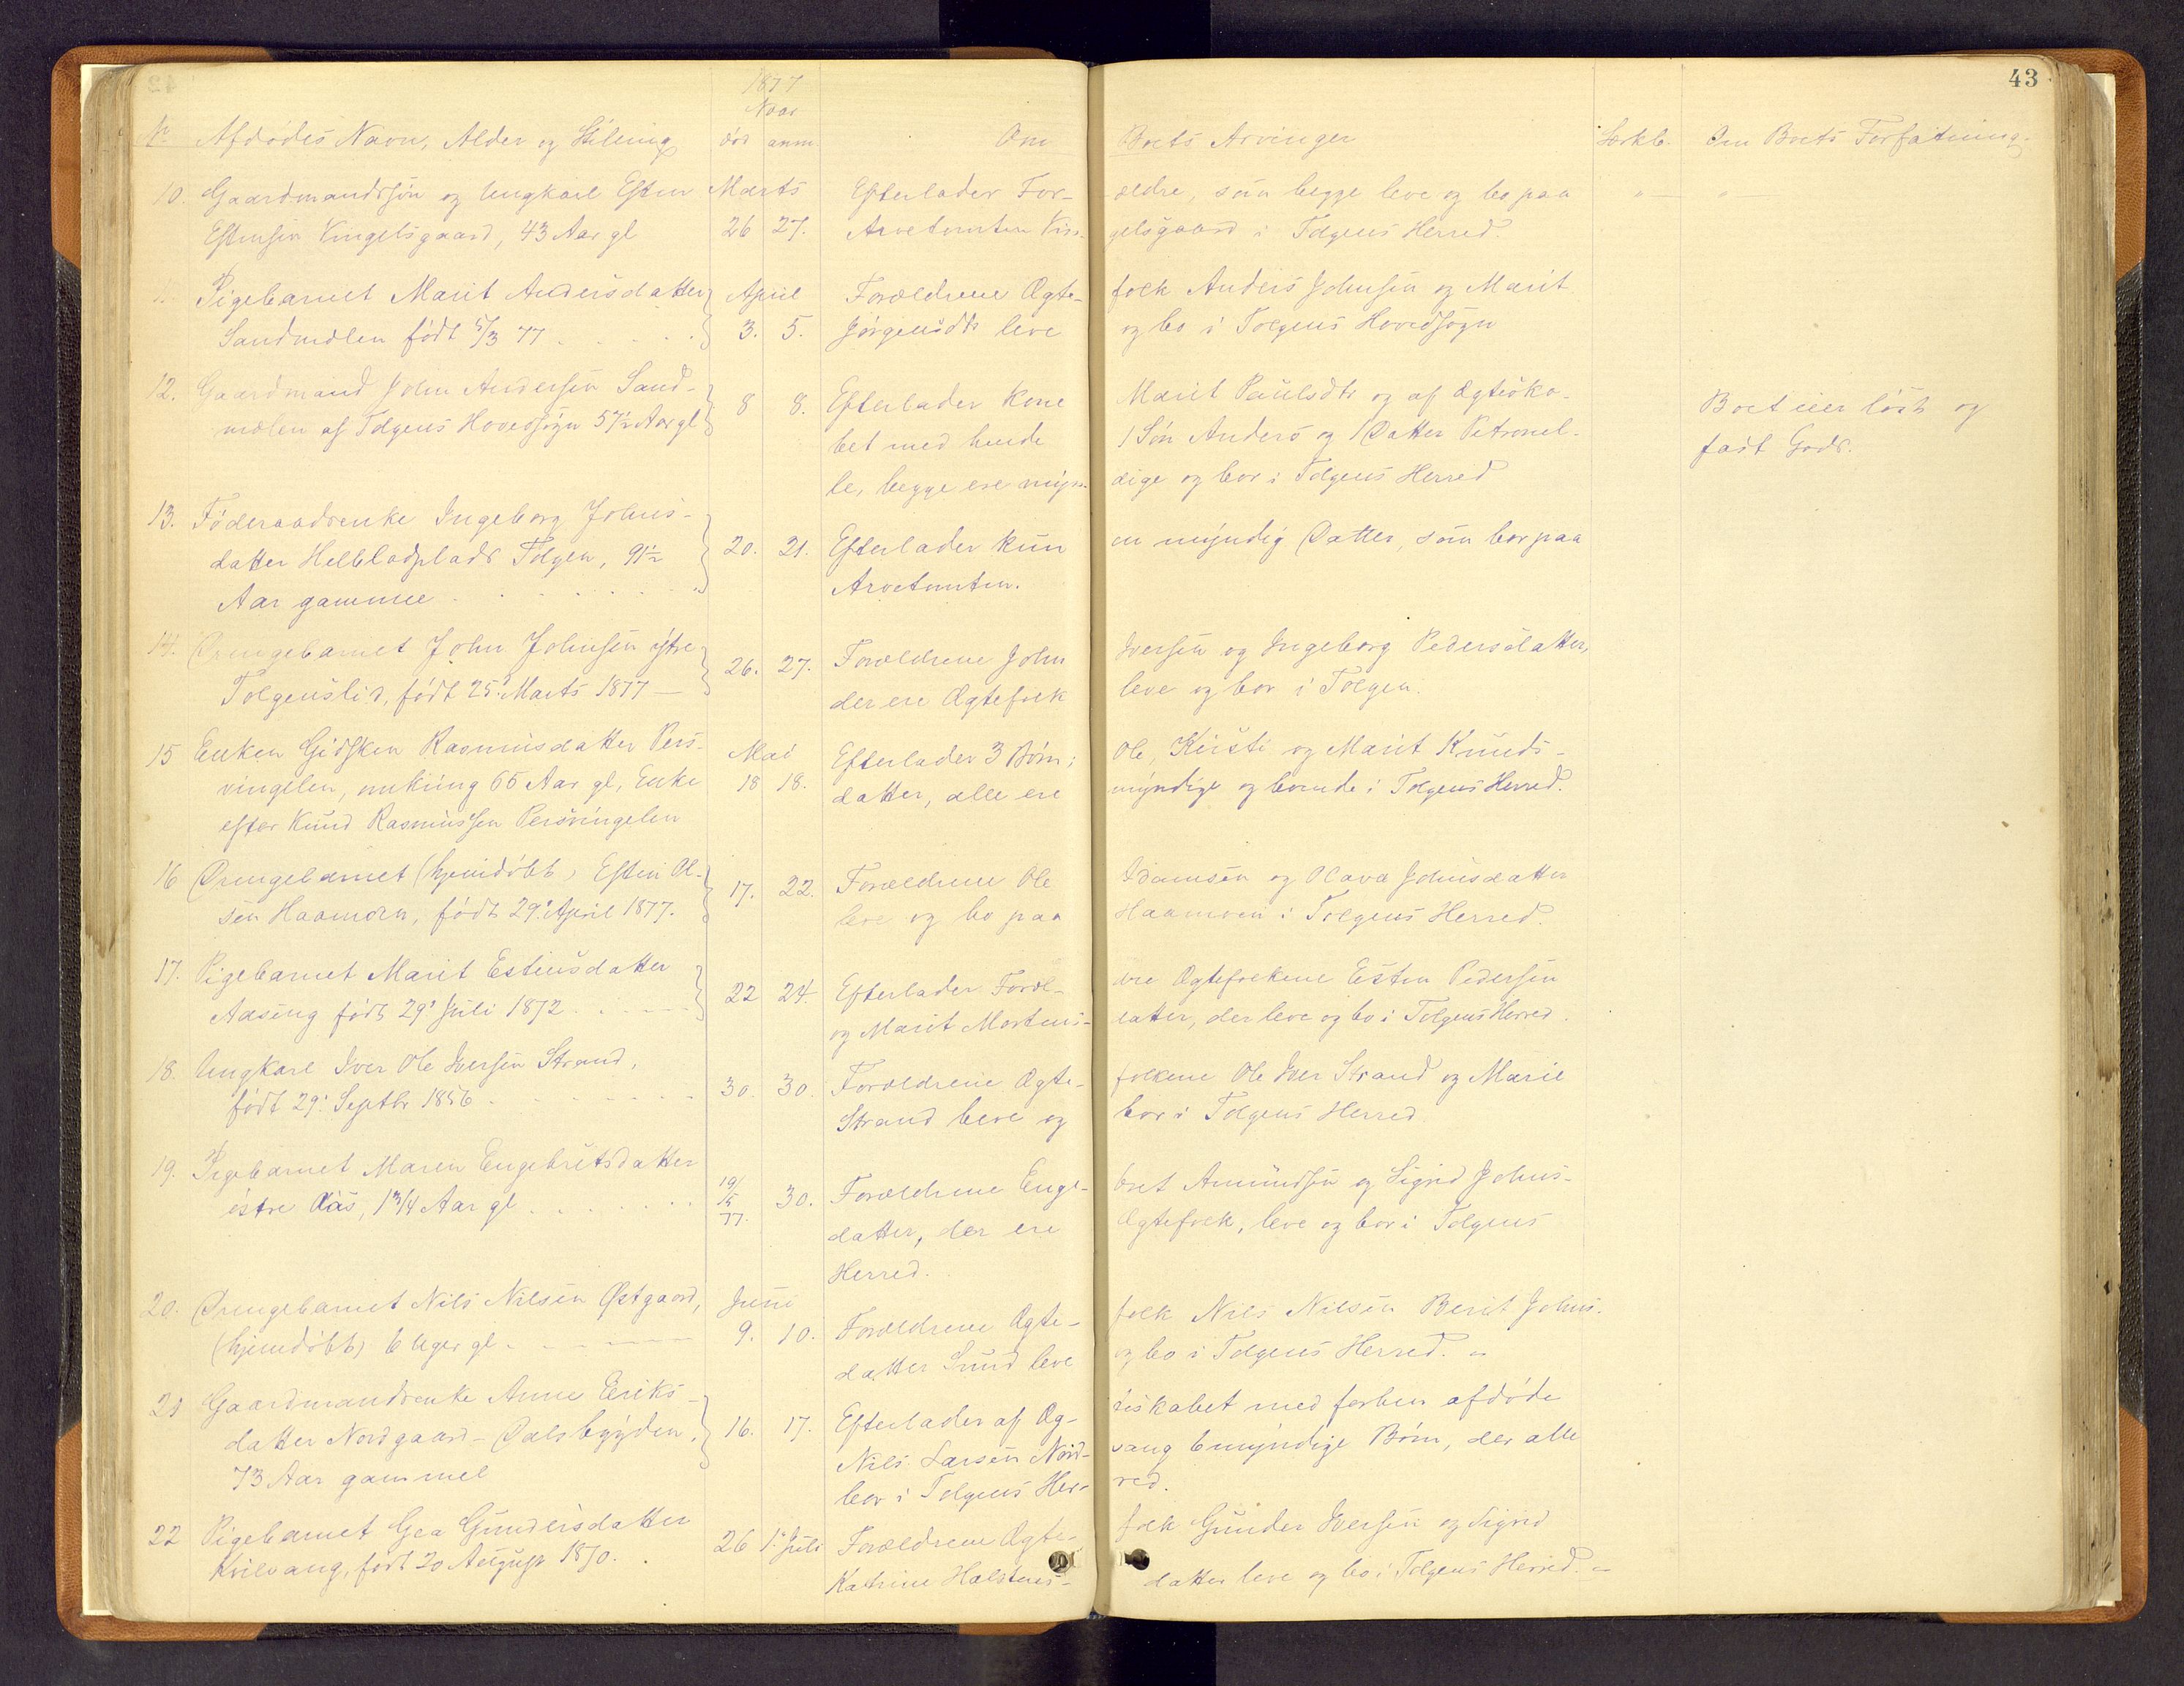 43
1877
Naar
Nr. Afdødes Navn, Alder og Stilling død anm. Om Boets Arvinger Særkb. Om Boets Forfatning.
10. Gaardmandssøn og Ungkarl Esten Marts Efterlader For- ældre, som begge leve og bo paa " — " —
Estensen Vingelsgaard, 43 Aar gl 26 27. Arvetomten Vin- gelsgaard i Tolgens Herred.
11. Pigebarnet Marit Andersdatter April Forældrene Ægte- folk Anders Johnsen og Marit
Sandmælen født 5/3 77 3. 5. Jørgensdtr leve og bo i Tolgens Hovedsogn
12. Gaardmand John Andersen Sand- 8 8. Efterlader Kone Marit Paulsdtr og af Ægteska- Boet eier løst og
mælen af Tolgens Hovedsogn 57½ Aar gl bet med hende 1 Søn Anders og 1 Datter Petronel- fast Gods.
le, begge ere myn- dige og bor i Tolgens Herred
13. Føderaadsenke Ingeborg Johns- 20. 21. Efterlader kun en myndig Datter, som bor paa
datter Helbladplads Tolgen, 91½ Arvetomten.
Aar gammel
14. Drengebarnet John Johnsen østre 26. 27. Forældrene John Iversen og Ingeborg Pedersdatter,
Tolgenslid, født 25. Marts 1877 — der ere Ægtefolk leve og bor i Tolgen.
15 Enken Gidsken Rasmusdatter Pers- Mai Efterlader 3 Børn: Ole, Kirsti og Marit Knuds-
vingelen, omkring 65 Aar gl, Enke 18 18. datter, alle ere myndige og boende i Tolgens Herred.
efter Knud Rasmussen Persvingelen
16 Drengebarnet (hjemdøbt) Esten Ol- 17. 22. Forældrene Ole Adamsen og Olava Johnsdatter
sen Haamoen, født 29. April 1877. leve og bo paa Haamoen i Tolgens Herred.
17. Pigebarnet Marit Estensdatter 22 24. Efterlader Foræl- dre Ægtefolkene Esten Pedersen
Aasing født 29. Juli 1872 og Marit Mortens- datter, der leve og bo i Tolgens Herred.
18. Ungkarl Iver Ole Iversen Strand, 30. 30. Forældrene Ægte- folkene Ole Iver Strand og Marie
født 29. Septbr 1856 Strand leve og bor i Tolgens Herred
19. Pigebarnet Maren Engebretsdatter 19/5 77. 30. Forældrene Enge- bret Amundsen og Sigrid Johns-
østre Aas, 1 3/4 Aar gl datter, der ere Ægtefolk, leve og bor i Tolgens
Herred.
20. Drengebarnet Nils Nilsen Østgaard, Juni Forældrene Ægte- folk Nils Nilsen Berit Johns-
(hjemdøbt) 6 Uger gl 9. 10. datter Sund leve og bo i Tolgens Herred. —
21 Gaardmandsenke Anne Eriks- 16. 17. Efterlader af Æg- teskabet med forhen afdøde
datter Nordgaard - Dalsbygden, Nils Larsen Nord- vang 6 myndige Børn, der alle
73 Aar gammel bor i Tolgens Her- red.
22 Pigebarnet Gea Gundersdatter 26 1. Juli Forældrene Ægte- folk Gunder Iversen og Sigrid
Kvilvang, født 20 August 1870. Katrine Halstens- datter leve og bo i Tolgens Herred. —